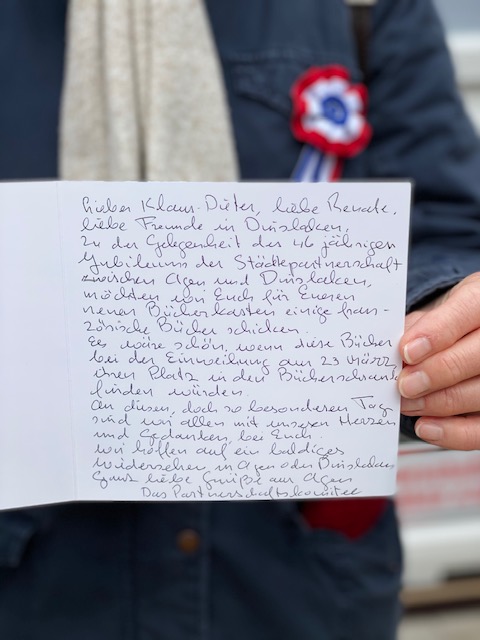 Lieber Klaus-Dieter, liebe Renate,
liebe Freunde in Dinslaken,
Zu der Gelegenheit des 46 jährigen
Jubiläums der Städtepartnerschaft
zwischen Agen und Dinslaken,
möchten wir Euch für Eueren
neuen Bücherkasten einige fran-
zösische Bücher schicken.
Es wäre schön, wenn diese Bücher
bei der Einweihung am 23 März,
ihren Platz in den Bücherschrank
finden würden.
An diesen, doch so besonderen Tag
sind wir allen mit unseren Herzen
und Gedanken, bei Euch.
Wir hoffen auf ein baldiges
Wiedersehen, in Agen oder Dinslaken
Ganz liebe Grüße aus Agen
Das Partnerschaftskomitee